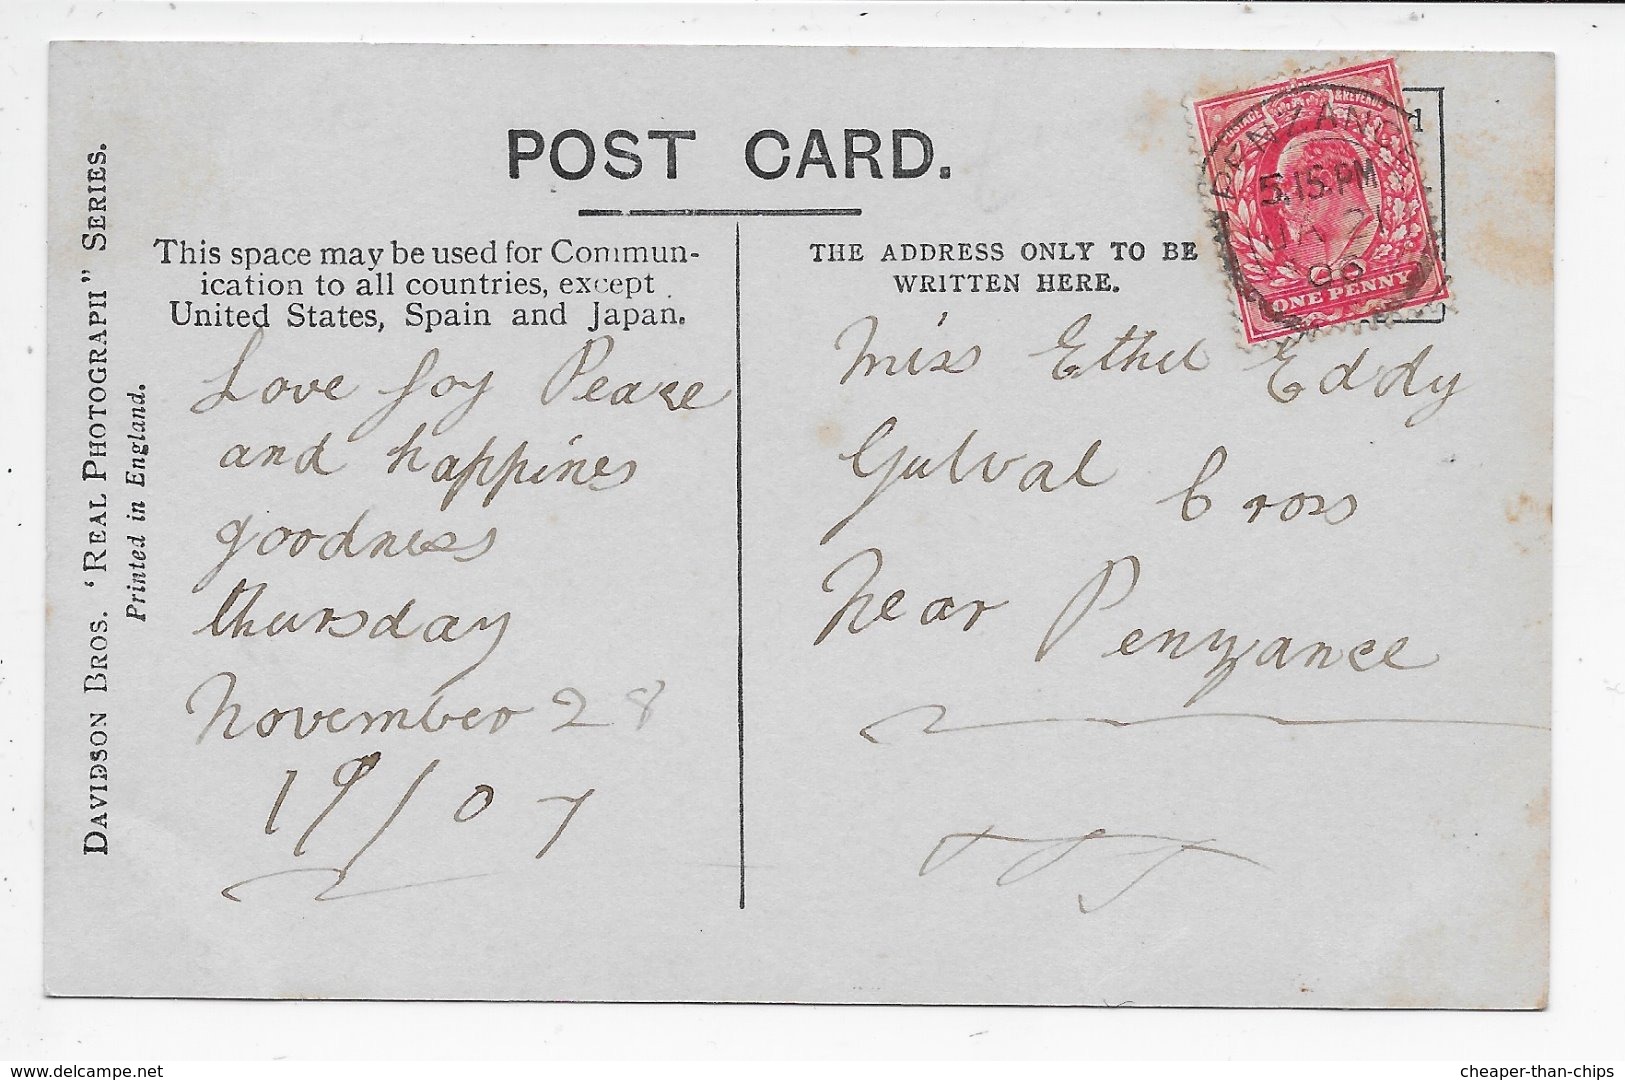 POST CARD.
DAVIDSON BROS. 'REAL PHOTOGRAPH" SERIES.
Printed in England.
This space may be used for Commun-
ication to all countries, except
United States, Spain and Japan.
THE ADDRESS ONLY TO BE
WRITTEN HERE.
POSTAGE & REVENUE
PENZANCE
5.15.PM
JA 21
08
ONE PENNY
Love Joy Peace
and happines
goodness
thursday
November 28
19/07
Miss Ethel Eddy
Gulval Cross
Near Penzance
www.delcampe.net
cheaper-than-chips